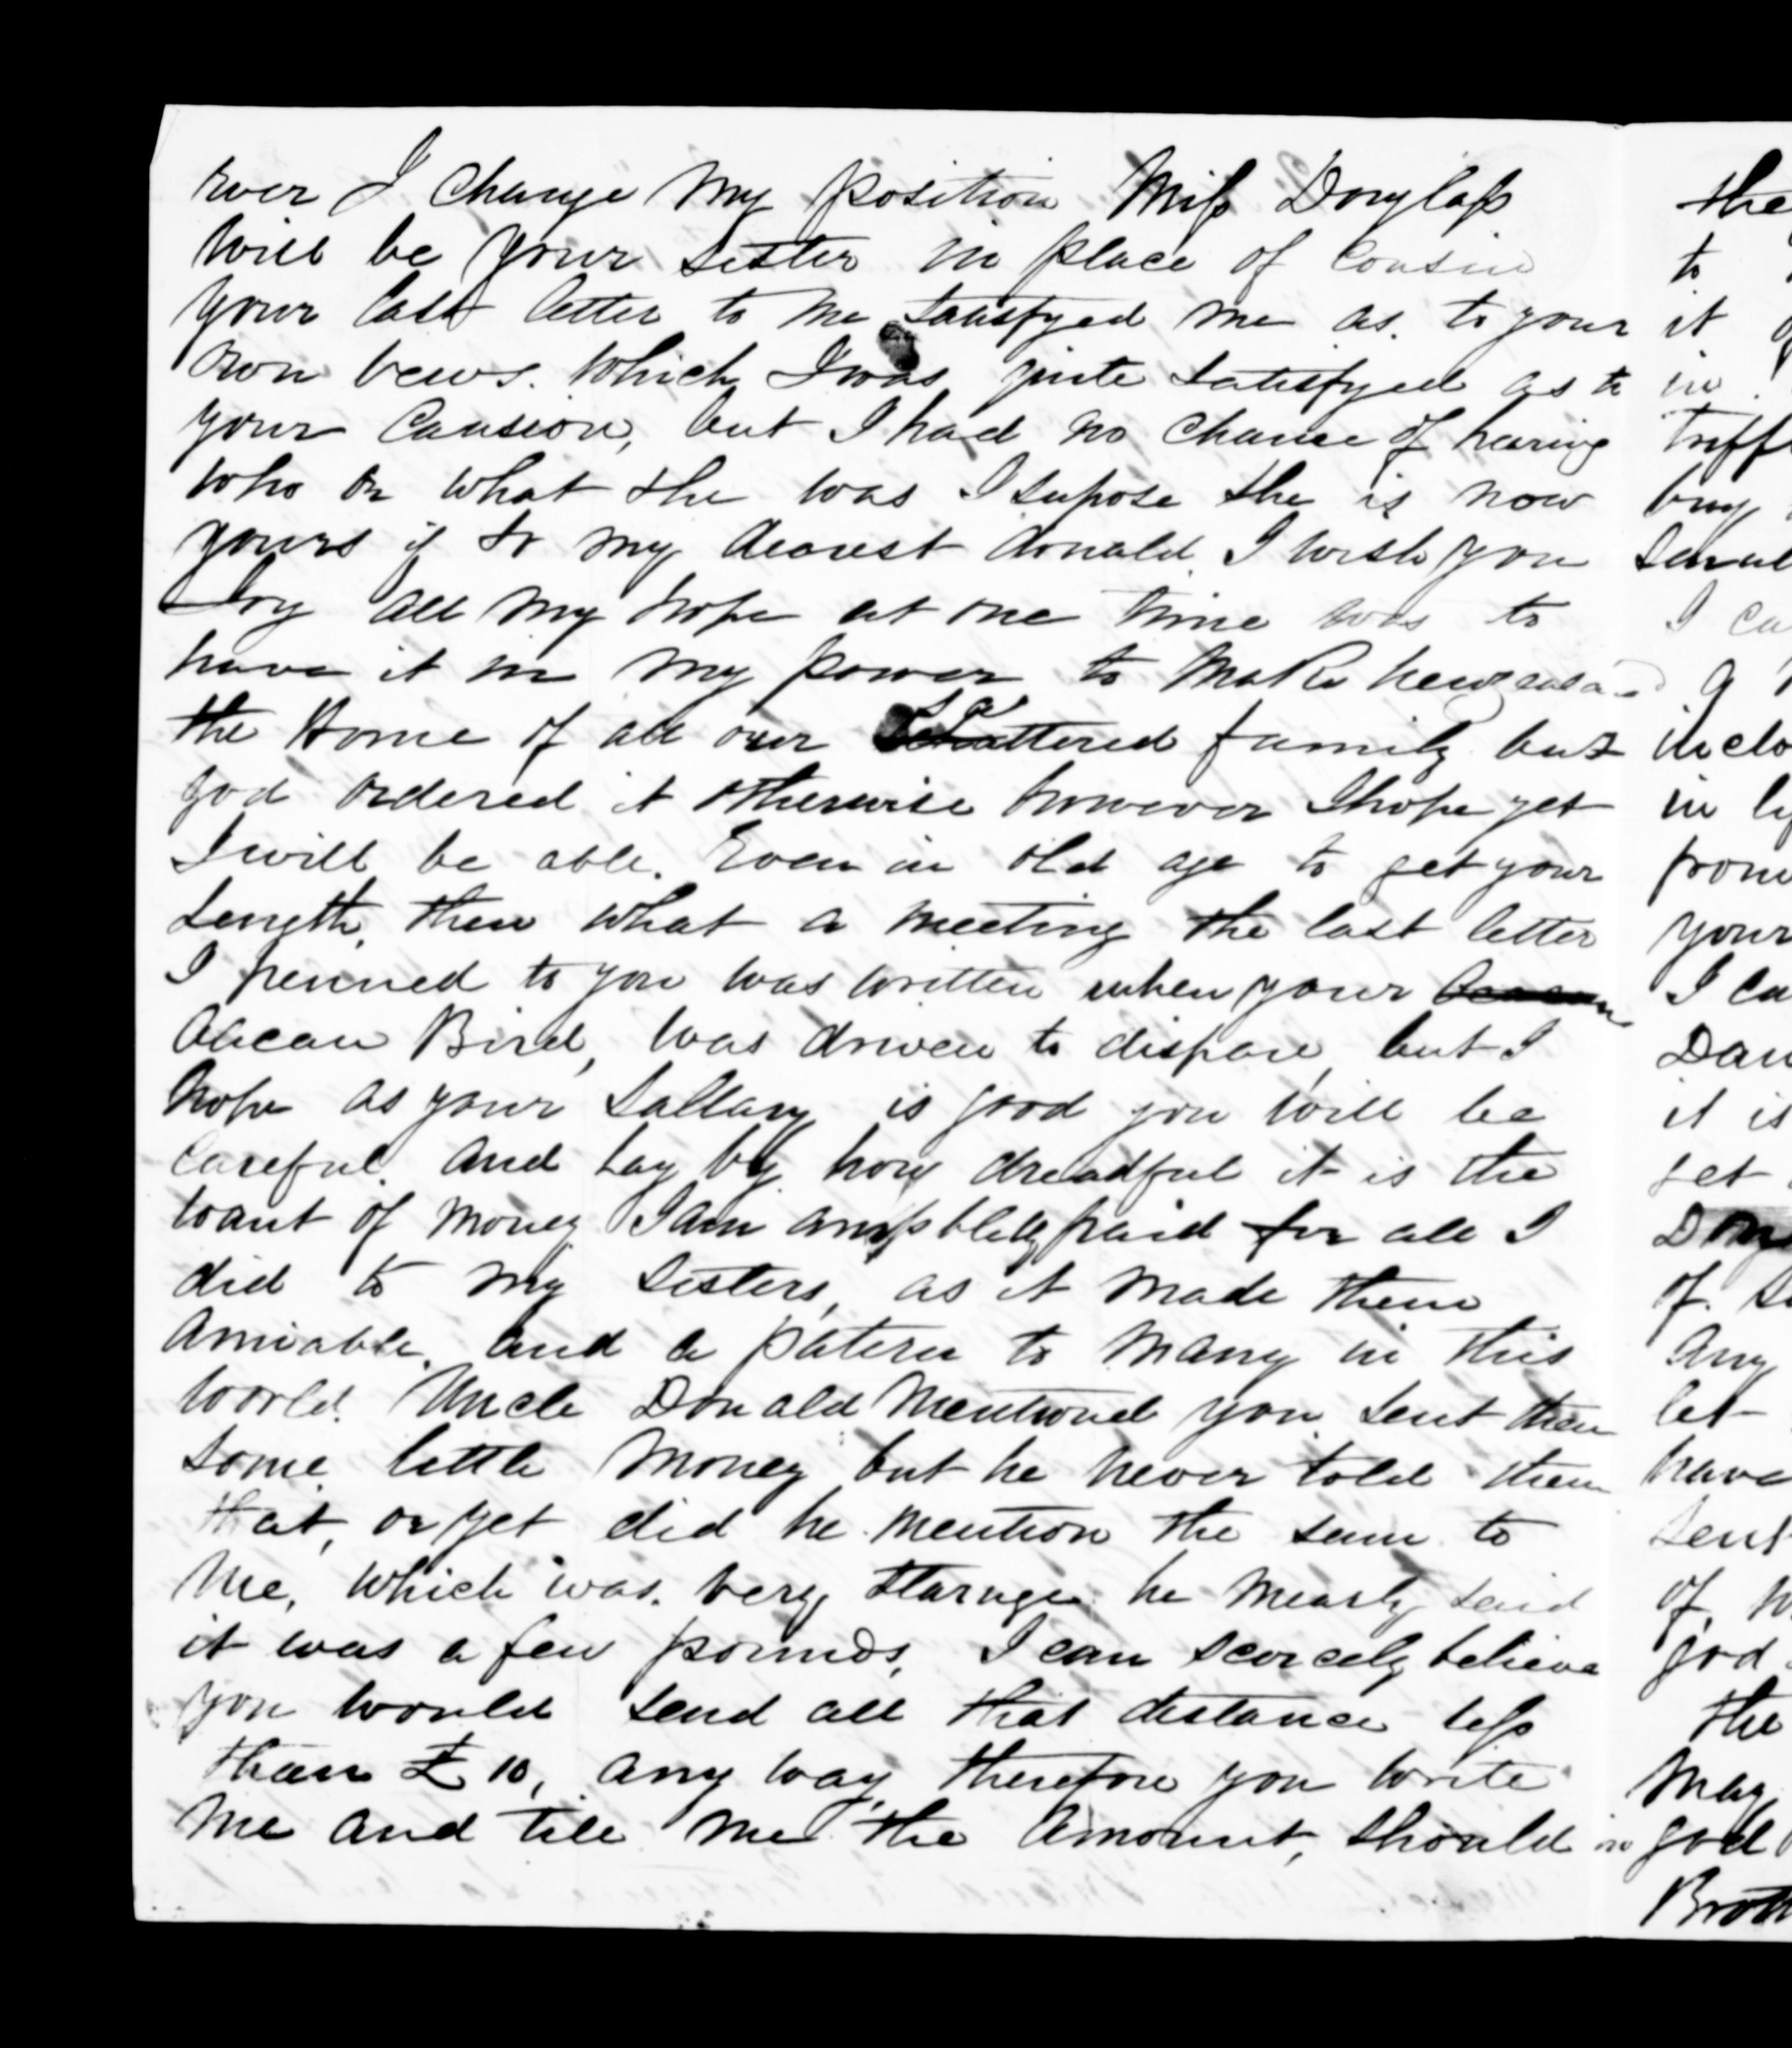 ever I change my position Miss Douglass
will be your sister in place of Cousin
your last letter to me satisfyed me as to your
own vews. Which I was quite satisfyed as to
your Causion, but I had no chance of hearing
who or what she was I supose she is now
yours if so my dearest donald I wish you
Joy all my hope at one time was to
have it in my power to make
the Home of all our scattered family but
god ordered it otherwise however I hope yet
I will be able. Even in old age to get your
Length, then what a meeting the last letter
I penned to you was written when your
Bird, was driven to dispare, but I
hope as your Sallary is good you will be
Careful. and Lay by how dreadful it is the
want of money I am amptlely paid for all I
did to my sisters, as it made them
Amiable. and a patern to many in this
world. Uncle Donald Mentioned you sent them
some little money but he never told them
that, or yet did he mention the sum to
me, which was. very starnge he mearly said
it was a few pounds, I can scorcely believe
you would send all that distance less
than £10, any way, therefore you write
me and tell me the amount, should
the
to
it
in
Triffl
buy
Smal
I ca
a
inclo
in
from
your
I ca
Dan
it is
get
of
Any
let
have
sent
of
god
the
May
god
Broth